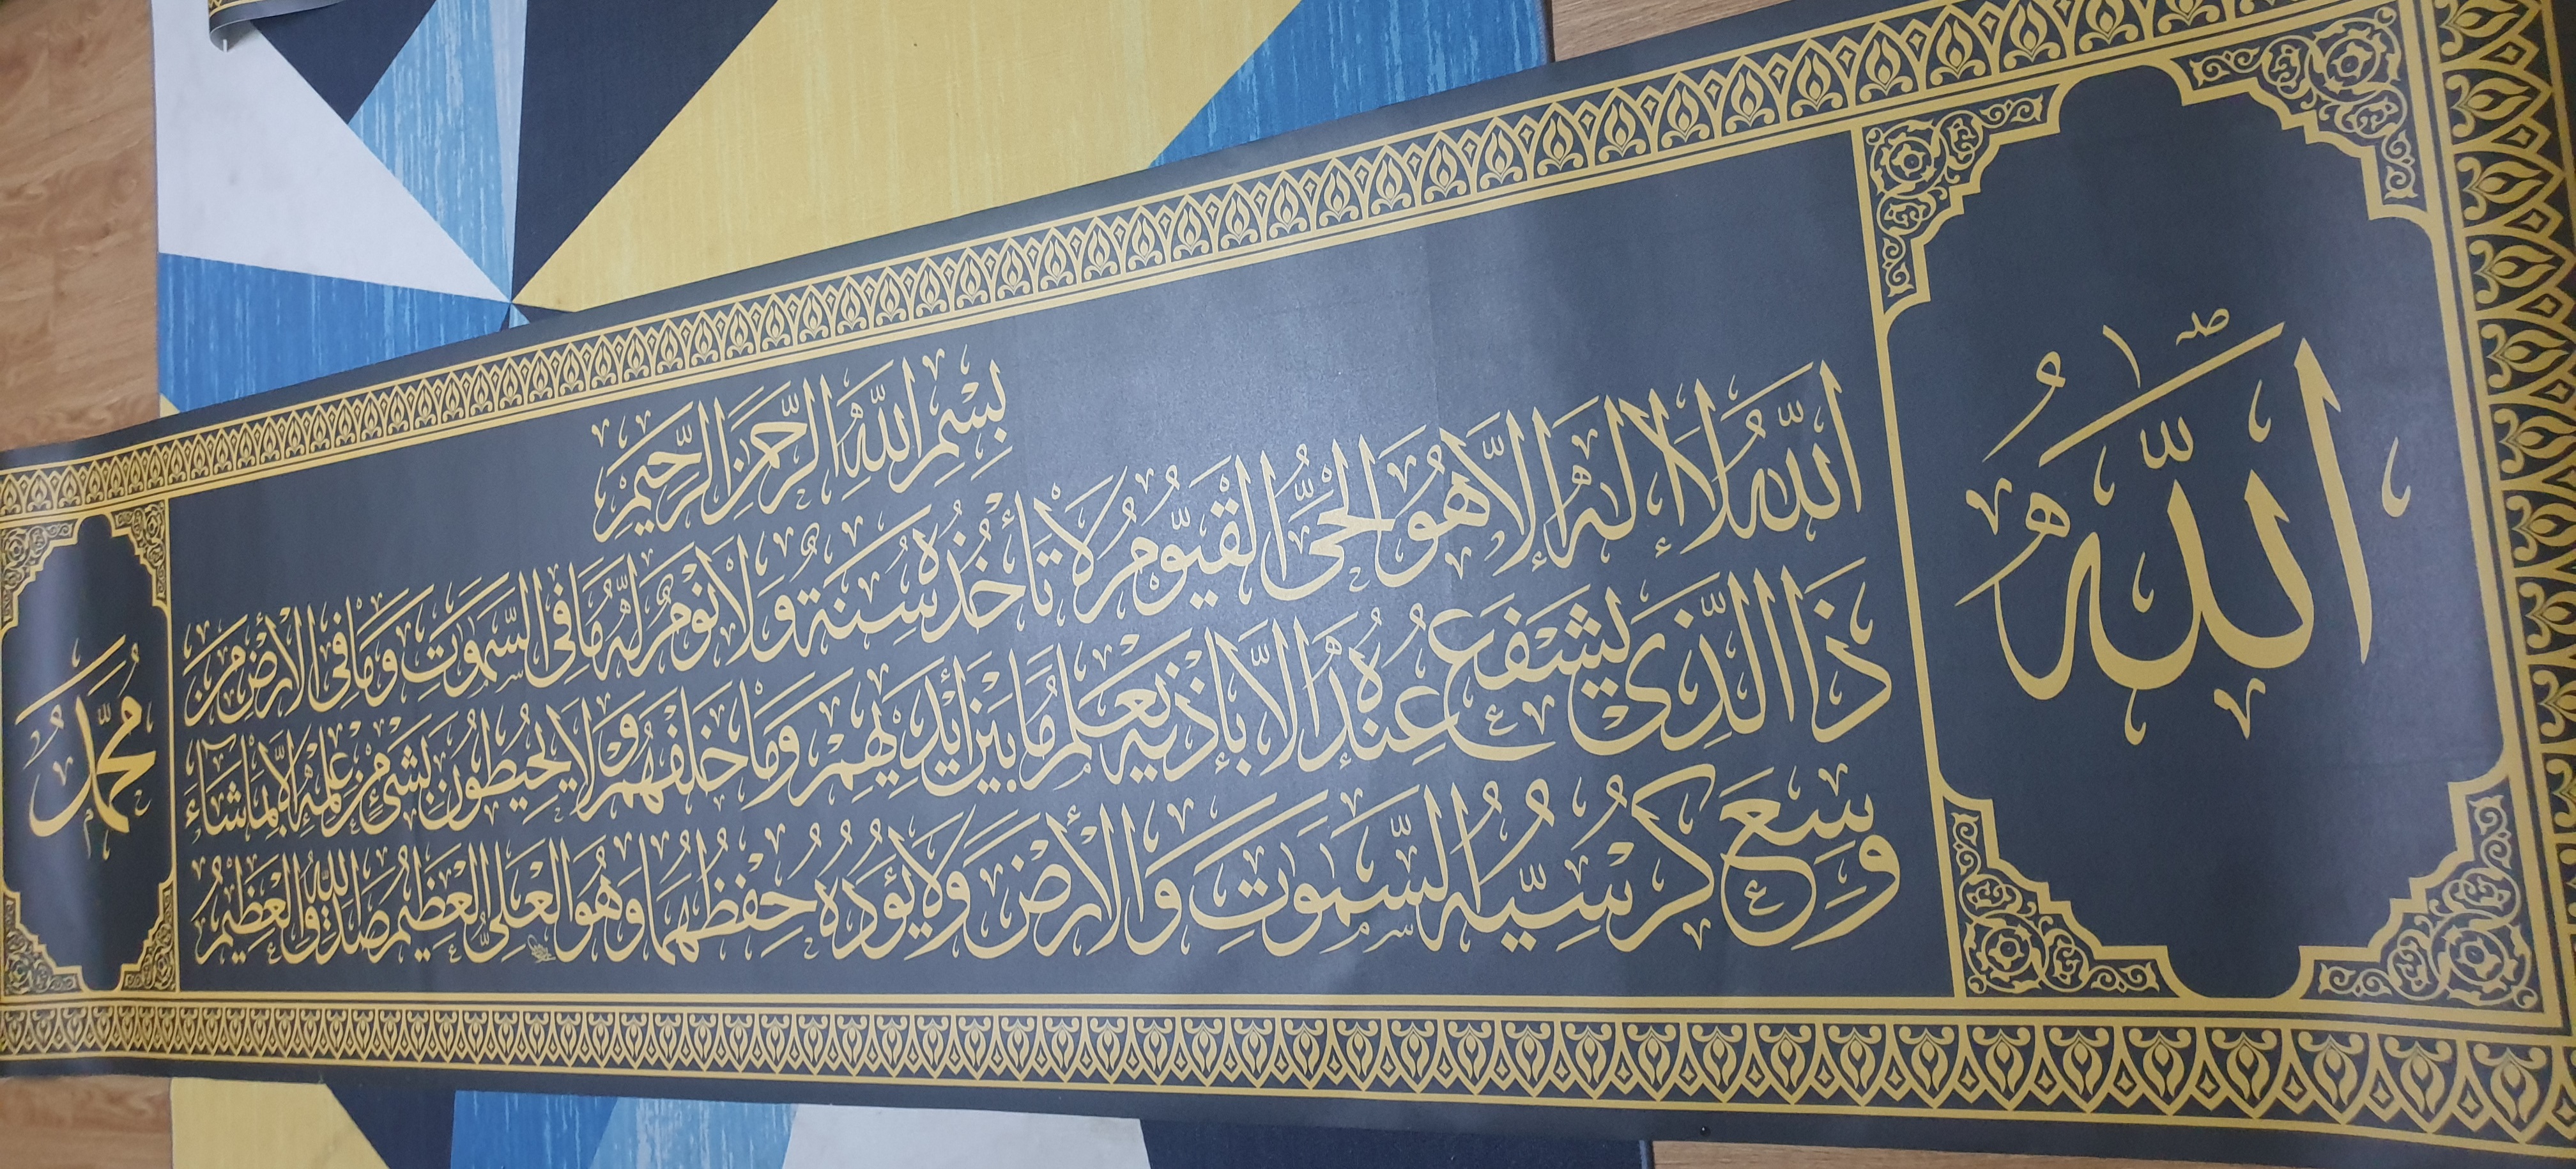 الله
بِسْمِ اللهِ الرَّحْمٰنِ الرَّحِيْمِ
اَللهُ لَا اِلٰهَ اِلَّا هُوَ الْحَيُّ الْقَيُّوْمُ لَا تَأْخُذُهُ سِنَةٌ وَلَا نَوْمٌ لَهُ مَا فِى السَّمٰوٰتِ وَمَا فِى الْاَرْضِ مَنْ
ذَا الَّذِىْ يَشْفَعُ عِنْدَهُ اِلَّا بِاِذْنِهِ يَعْلَمُ مَا بَيْنَ اَيْدِيْهِمْ وَمَا خَلْفَهُمْ وَلَا يُحِيْطُوْنَ بِشَىْءٍ مِنْ عِلْمِهِ اِلَّا بِمَا شَاءَ
وَسِعَ كُرْسِيُّهُ السَّمٰوٰتِ وَالْاَرْضَ وَلَا يَؤُدُهُ حِفْظُهُمَا وَهُوَ الْعَلِىُّ الْعَظِيْمُ صَدَقَ اللهُ الْعَظِيْمُ
مُحَمَّد